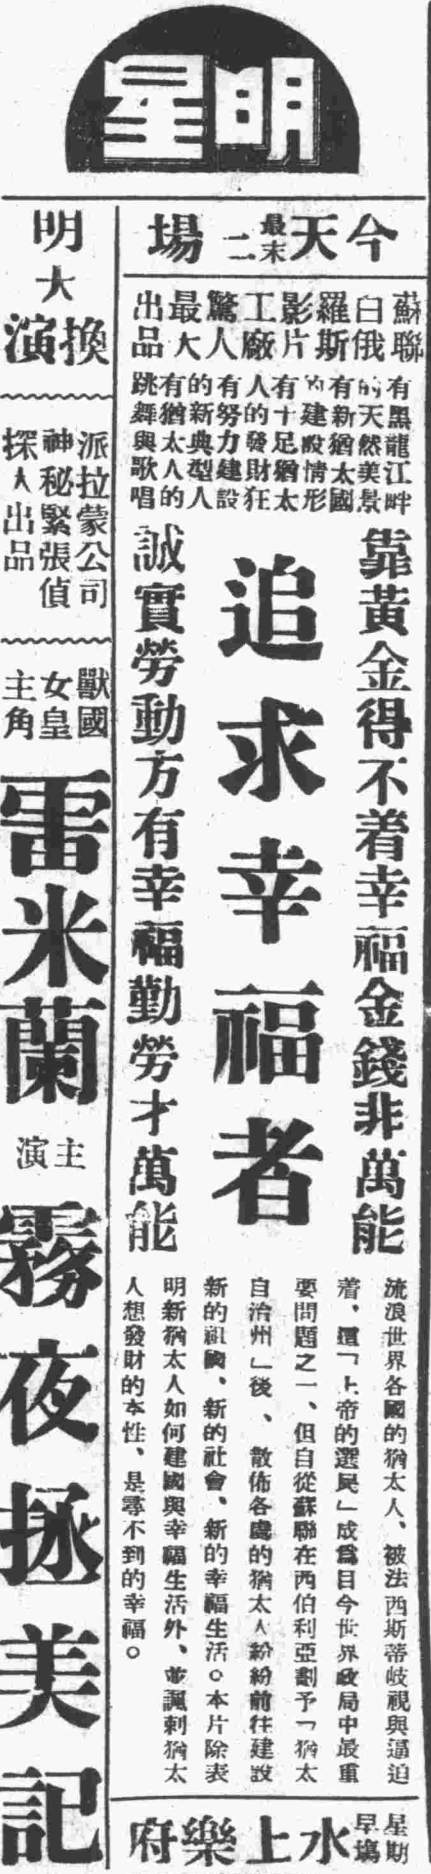 明星
今天最末二場
蘇聯
白俄
羅斯
影片
工廠
驚人
最大
出品
有黑龍江畔
的天然美景
有新猶太國
的建設情形
有十足猶太
人的發財狂
有努力建設
的新典型人
有猶太人的
跳舞與歌唱
靠黃金得不着幸福金錢非萬能
追求幸福者
誠實勞動方有幸福勤勞才萬能
流浪世界各國的猶太人、被法西斯蒂歧視與逼迫
着、這「上帝的選民」成爲目今世界政局中最重
要問題之一、但自從蘇聯在西伯利亞劃予「猶太
自治州」後、散佈各處的猶太人紛紛前往建設
新的祖國、新的社會、新的幸福生活。本片除表
明新猶太人如何建國與幸福生活外、並諷刺猶太
人想發財的本性、是尋不到的幸福。
星期
早場
水上樂府
明大
換演
派拉蒙公司
神秘緊張偵
探人出品
獸國
女皇
主角
雷米蘭
主演
霧夜拯美記